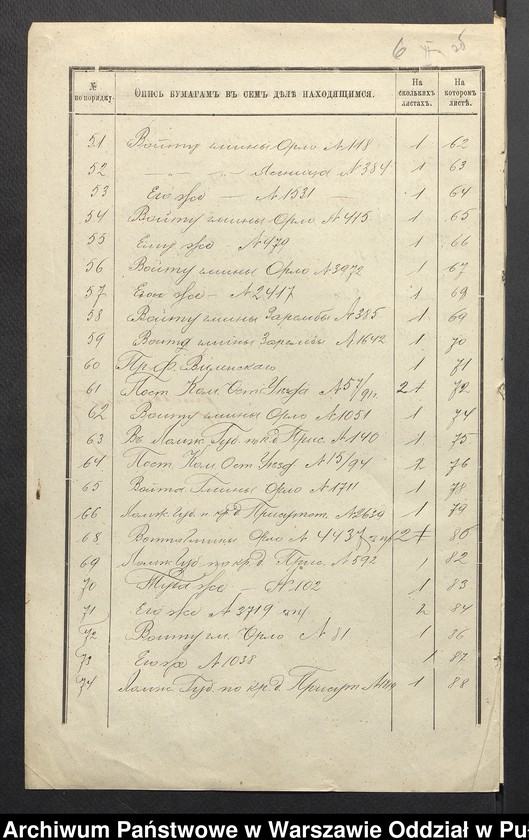 6
№ по порядку.
Опись бумагамъ въ семъ дѣлѣ находящимся.
На сколькихъ листахъ.
На которомъ листѣ.
51 Войту гмины Орло №118 1 62
52 — „ — „ — Ясеница №384 1 63
53 Его же — №1531 — 1 64
54 Войту гмины Орло №415 1 65
55 Ему же - №479 1 66
56 Войту гмины Орло №3972 1 67
57 Его же - №2417 1 68
58 Войту гмины Зарембы №385 1 69
59 Войта гмины Зарембы №1642 1 70
60 1 71
61 Пост. Ком. Ост. Уезда №57/91 2 72
62 Войту гмины Орло №1051 1 74
63 Въ Ломж. Губ. по кр. д. Прис. №140 1 75
64 Пост. Ком. Ост. Уезд №15/94 2 76
65 Войта Гмины Орло №1711 1 78
66 Ломж. Губ. п кр. д Присутст. №2639 1 79
68 Войта Гмины Орло №4437 2 80
69 Ломж. Губ. по кр. д. Прис. №592 1 82
70 Туда же - №102 1 83
71 Его же №3719 2 84
72 Войту гм. Орло №81 1 86
73 Его же №1038 1 87
74 Ломж. Губ. по кр. д. Присут. 1 88
Archiwum Państwowe w Warszawie Oddział w Pu